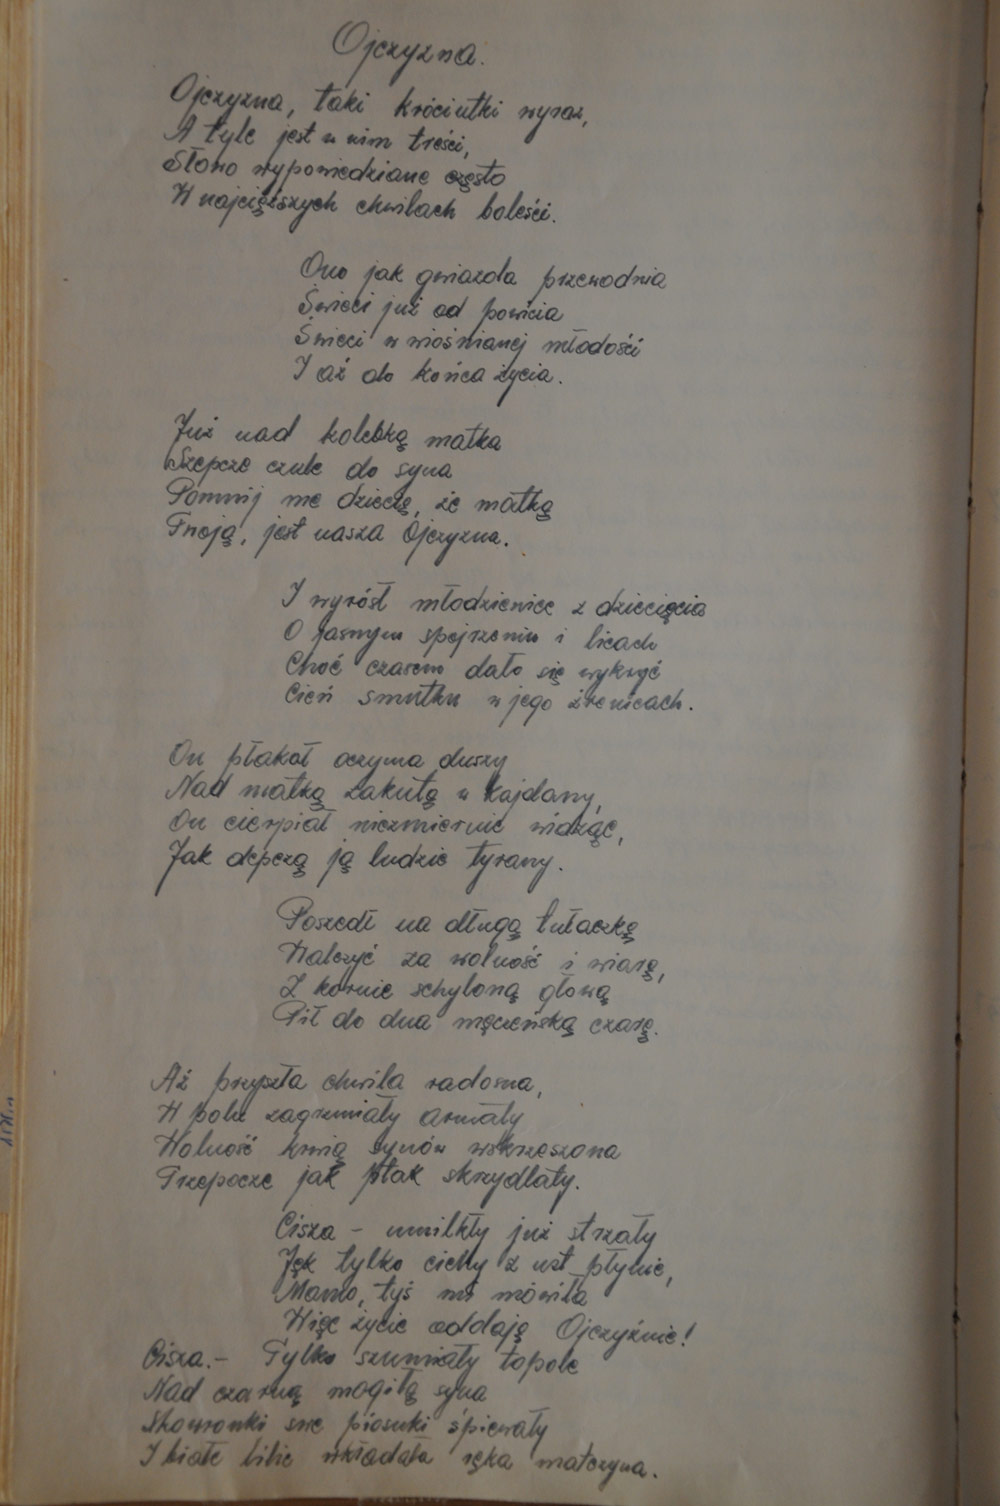 Ojczyzna.
Ojczyzna, taki króciutki wyraz,
A tyle jest w nim treści,
Słowo wypowiedziane często
W najcięższych chwilach boleści.
Ono jak gwiazda przewodnia
Świeci już od powicia
Świeci w wiośnianej młodości
I aż do końca życia.
Już nad kolebką matka
Szepcze czule do syna
Pomnij me dziecię, że matką
Twoją, jest nasza Ojczyzna.
I wyrósł młodzieniec z dziecięcia
O jasnym spojrzeniu i licach
Choć czasem dało się wykryć
Cień smutku w jego źrenicach.
On płakał oczyma duszy
Nad matką zakutą w kajdany,
On cierpiał niezmiernie widząc,
Jak depczą ją ludzie tyrany.
Poszedł na długą tułaczkę
Walczyć za wolność i wiarę,
Z kornie schyloną głową
Pił do dna męczeńską czarę.
Aż przyszła chwila radosna,
W polu zagrzmiały armaty
Wolność krwią synów wskrzeszona
Trzepocze jak ptak skrzydlaty.
Cisza - umilkły już strzały
Jęk tylko cichy z ust płynie,
Mamo, tyś mi mówiła
Więc życie oddaję Ojczyźnie!
Cisza. - Tylko szumiały topole
Nad czarną mogiłą syna
Skowronki swe piosnki śpiewały
I białe lilie wkładała ręka matczyna.